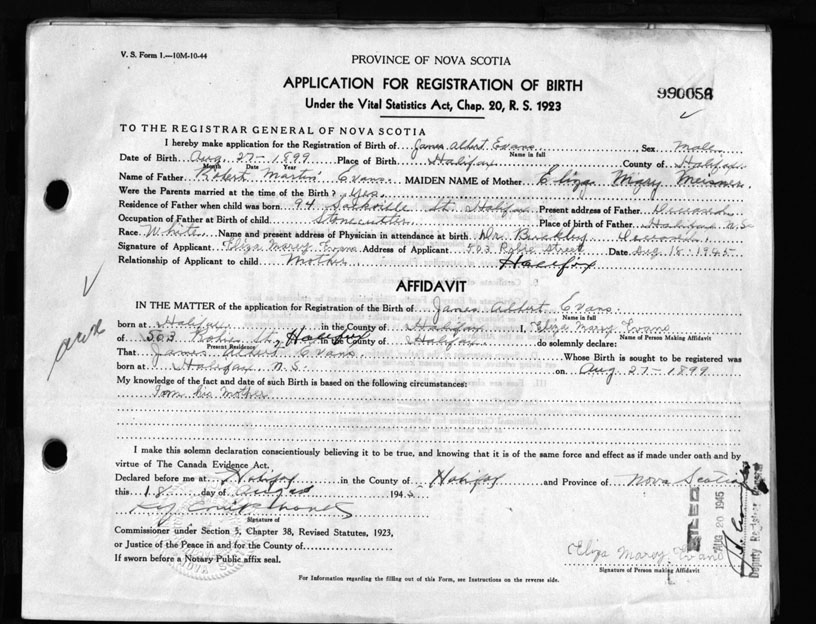 V. S. Form 1.—10M-10-44
PROVINCE OF NOVA SCOTIA
APPLICATION FOR REGISTRATION OF BIRTH
990058
Under the Vital Statistics Act, Chap. 20, R. S. 1923
TO THE REGISTRAR GENERAL OF NOVA SCOTIA
I hereby make application for the Registration of Birth of James Albert Evans Sex Male
Name in full
Date of Birth Aug. 27 - 1899 Place of Birth Halifax County of Halifax
Month Date Year
Name of Father Robert Martin Evans MAIDEN NAME of Mother Eliza Mary Meisner
Were the Parents married at the time of the Birth? Yes
Residence of Father when child was born 94 Sackville St. Halifax Present address of Father Deceased
Occupation of Father at Birth of child Stonecutter Place of birth of Father Halifax N.S.
Race White Name and present address of Physician in attendance at birth Dr. Buckley Deceased
Signature of Applicant Eliza Mary Evans Address of Applicant 503 Street Date 18 - 1945
Relationship of Applicant to child Mother Halifax
AFFIDAVIT
IN THE MATTER of the application for Registration of the Birth of James Albert Evans
Name in full
born at Halifax in the County of Halifax I, Eliza Mary Evans
Name of Person Making Affidavit
of 503 St, Halifax in the County of Halifax do solemnly declare:
Present Residence
That James Albert Evans Whose Birth is sought to be registered was
born at Halifax N.S. on Aug 27 - 1899
My knowledge of the fact and date of such Birth is based on the following circumstances:
his Mother
I make this solemn declaration conscientiously believing it to be true, and knowing that it is of the same force and effect as if made under oath and by
virtue of The Canada Evidence Act.
Declared before me at Halifax in the County of Halifax and Province of Nova Scotia
this 18 day of August 194
Signature of
Commissioner under Section 5, Chapter 38, Revised Statutes, 1923,
or Justice of the Peace in and for the County of
If sworn before a Notary Public affix seal.
Eliza Mary Evans
Signature of Person making Affidavit
FILED
AUG 20 1945
Deputy Registrar General
For Information regarding the filling out of this Form, see Instructions on the reverse side.